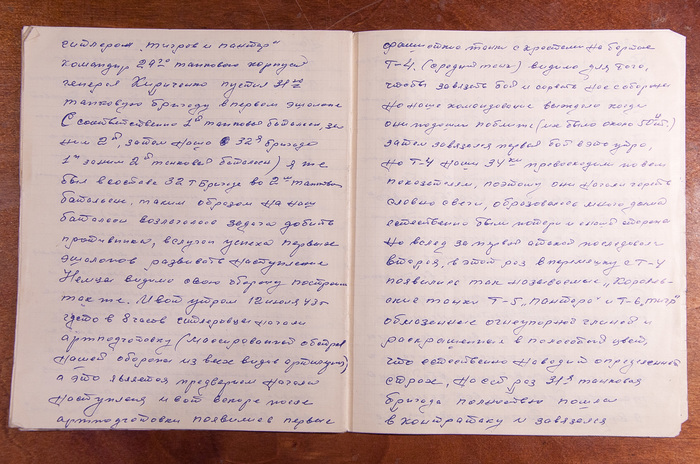 ситлером "тигров и пантер"
Командир 29го танкового корпуса
генерал Кириченко пустил 31ую
танковую бригаду в первом эшелоне
С соответственно 1й танковой батальон, за
ним 2й, затем наша 32я бригада
1й за ним 2й танковой батальон) Я же
был в составе 32 т бригаде во 2м танков
батальоне, таким образом на наш
батальон возлагалась задача добить
противника, в случаи успеха первых
эшелонов развивать наступление
Немцы видимо свою оборону построили
так же. И вот утром 12 июля 43г
где то в 8 часов ситлеровцы начали
артподготовку (массированной обстрел
нашей обороны из всех видов артиллерии)
а это является предверием начала
наступления и вот вскоре после
артподготовки появились первые
фашисткие танки с крестами на бортах
Т-4. (средний танк) видимо для того,
чтобы завязать бой и
но наше командование выждало когда
они подошли поближе (их было около
затем завязался первый бой в это утро,
но Т-4 наши 34ки превосходили по всем
показателям, поэтому они начали гореть
словно свечи, образовалось много дыма
естественно были потери и с нашей стороны
Но вслед за первой атакой последовала
вторая, в этот раз в перемешку с Т-4
появились так называемые "Королев-
ские танки Т-5 "пантера" и Т-6 "тигр"
обмазанные огнеупорной глиной и
раскрашенные в полосатой цвет,
что естественно наводит определенный
страх, На сей раз 31я танковая
бригада полностью пошла
в контратаку и завязался